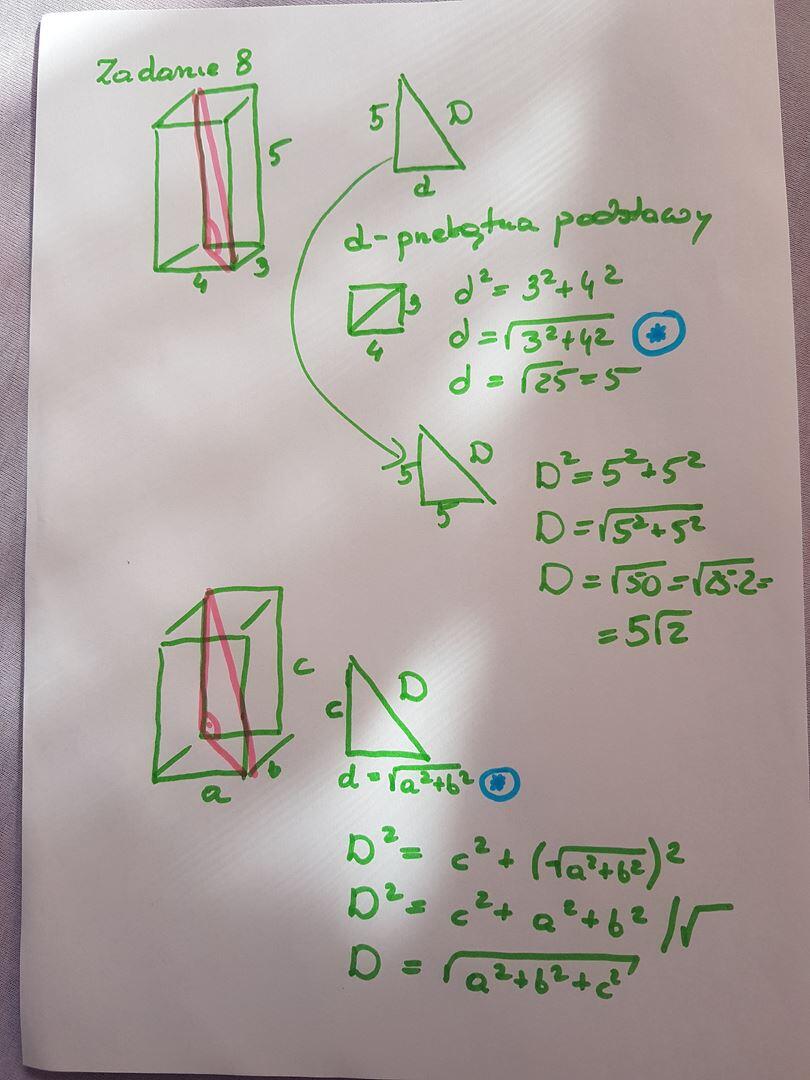 Zadanie 8
5
4
3
5 D
d
d - przekątna podstawy
3
4
d² = 3² + 4²
d = √3² + 4² *
d = √25 = 5
5 D
5
D² = 5² + 5²
D = √5² + 5²
D = √50 = √25·2 =
= 5√2
c
a
b
c D
d = √a² + b² *
D² = c² + (√a² + b²)²
D² = c² + a² + b² /√
D = √a² + b² + c²